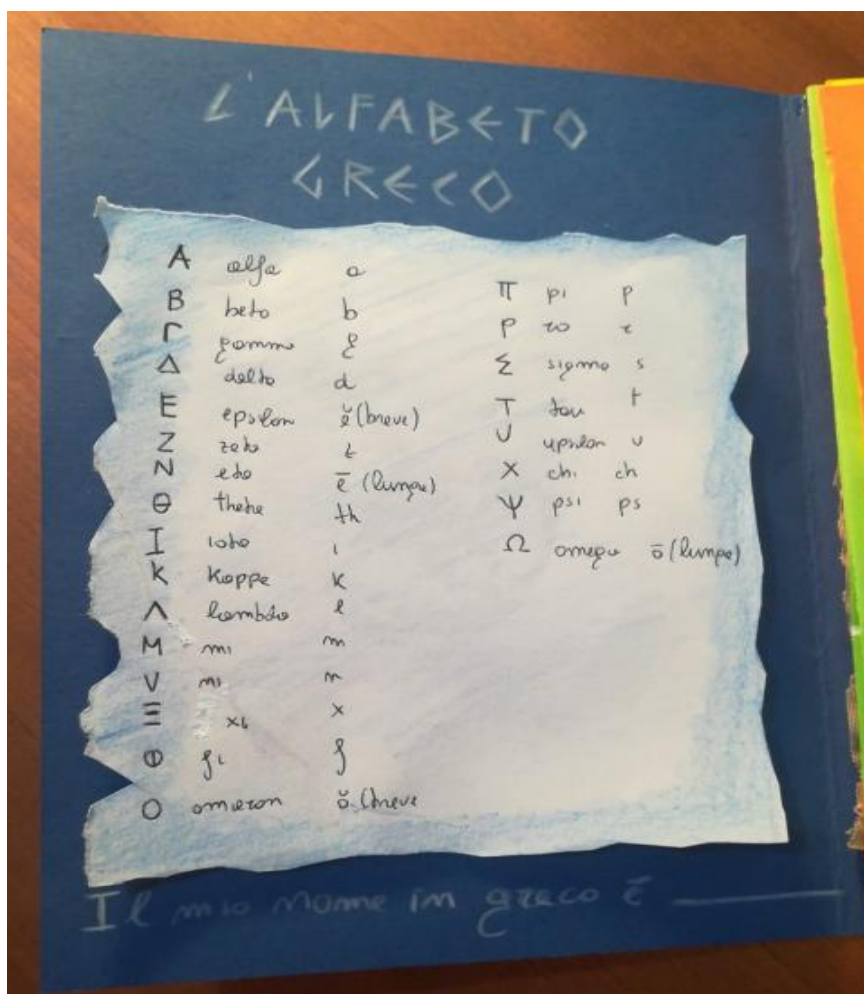 L'ALFABETO
GRECO
Α alfa a
Β beta b
Γ gamma g
Δ delta d
Ε epsilon ĕ (breve)
Ζ zeta z
Ν eta ē (lunga)
Θ theta th
Ι iota i
Κ Kappa K
Λ lambda l
Μ mi m
V ni n
Ξ xi x
Φ fi f
Ο omicron ŏ (breve
Π pi p
Ρ ro r
Σ sigma s
Τ tau t
U upsilon u
Χ chi ch
Ψ psi ps
Ω omega ō (lunga)
Il mio nome in greco è ______